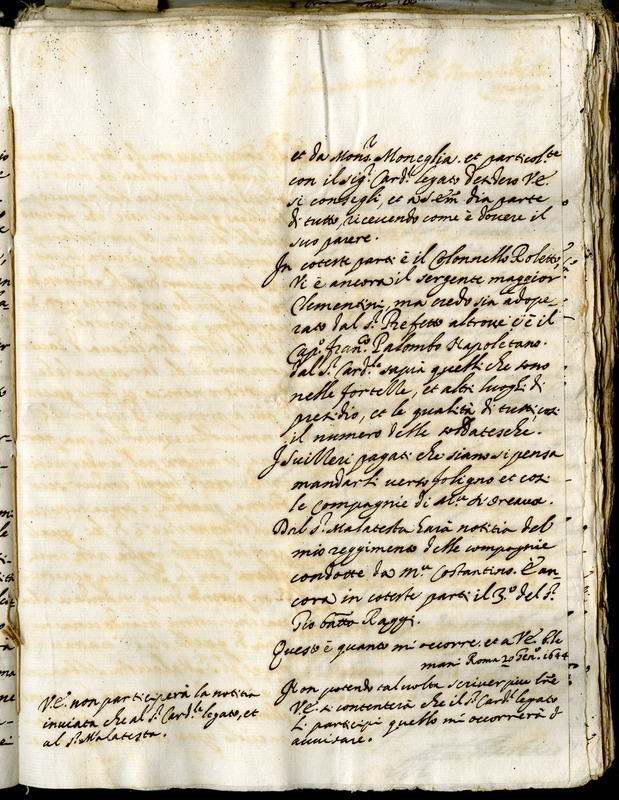 et da Mons.r Moneglia. et particol.te
con il Sig.r Card.l legato desidero V.E.
si consegli, et a S. Em. dia parte
di tutto, ricevendo come è dovere il
suo parere.
In coteste parti è il Colonnello Roletti,
Vi è ancora il sergente maggior
Clementini, ma credo sia adope
rato dal S.r Prefetto altrove è il
Cap.o Fran.co Palombo Napoletano.
dal S.r Card.le saprà quelli che sono
nelle fortezze, et altri luoghi di
presidio, et le qualità di tutti, così
il numero delle soldatesche.
I Suizzeri pagati che siano si pensa
mandarli verso foligno et così
le Compagnie di
Dal S.r Malatesta harà notitia del
mio reggimento delle compagnie
condotte da m.r Costantino. È an-
cora in coteste parti il 3.o del S.r
Gio batta Raggi.
Questo è quanto mi occorre. et a V.E. b. le
mani Roma 20 Gen.o 1644
Non potendo tal volta scriver più l're
V.E. si contenterà che il S.r Card.l legato
li participi quello mi occorrerà d'
avvisare.
V.E. non parteciperà la notitia
inviata che al S.r Card.le legato, et
al S.r Malatesta.